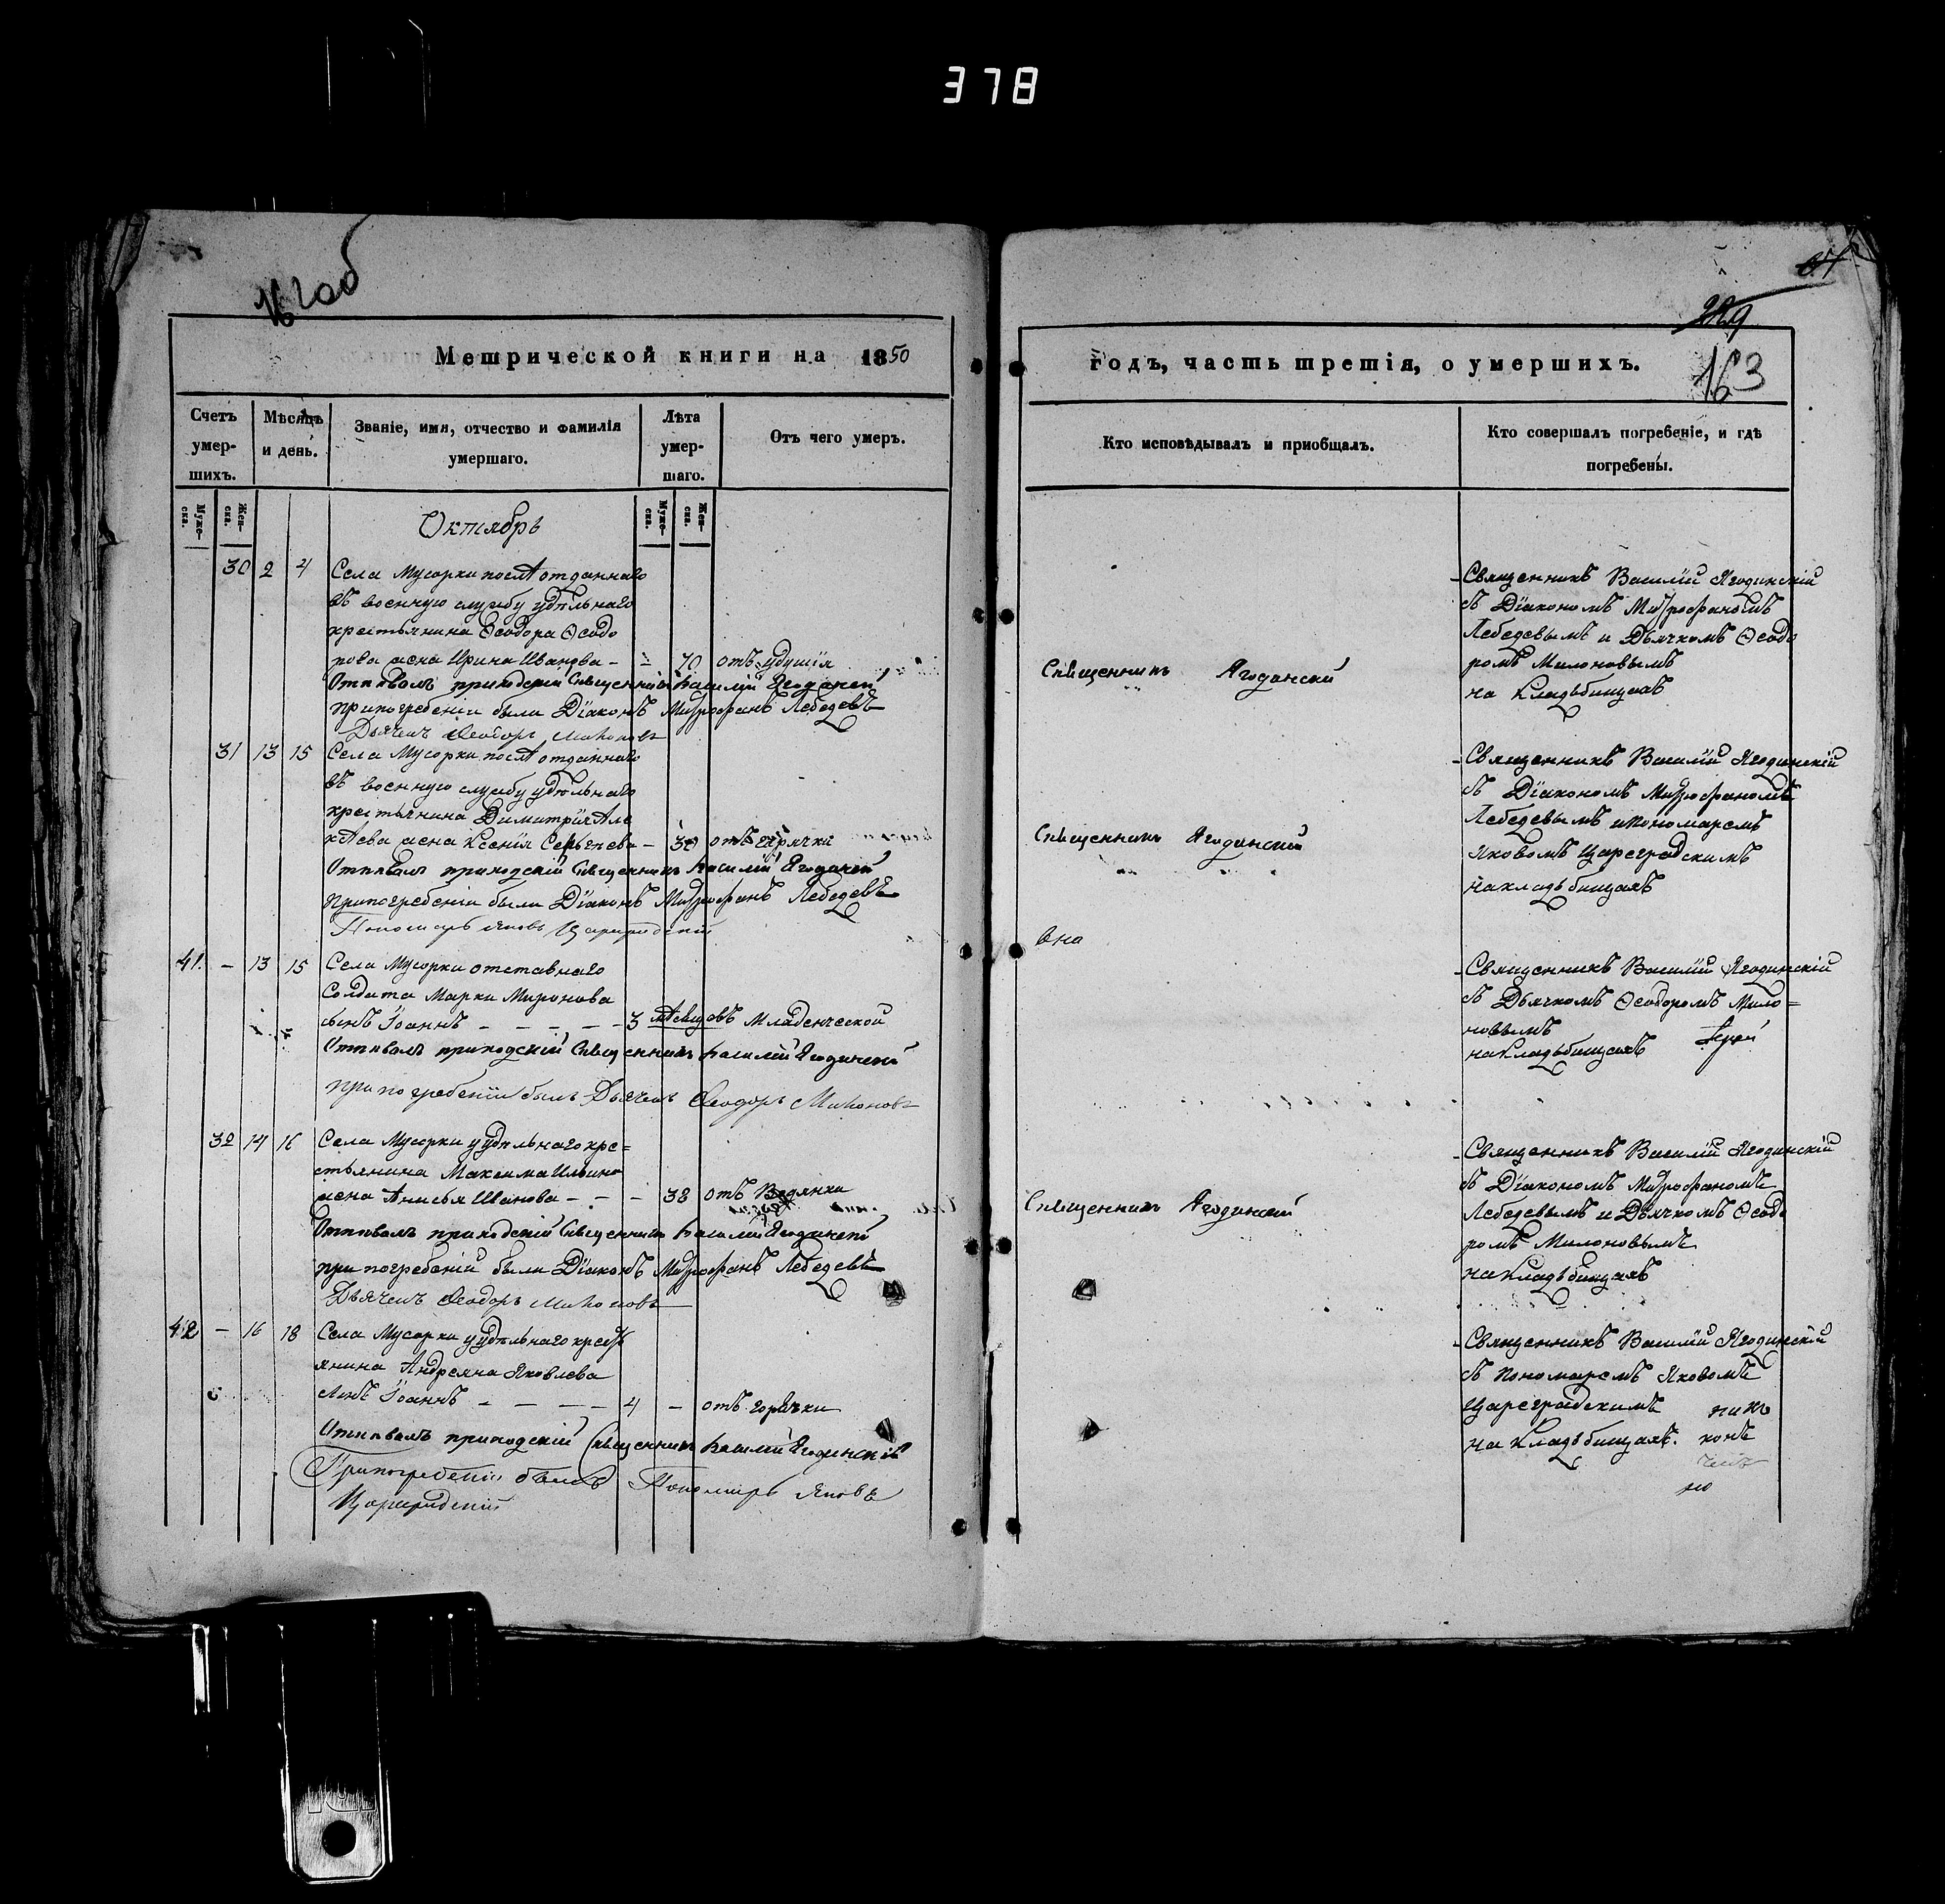 378
162 об
Метрической книги на 1850
Счетъ умер-шихъ.
Мѣсяцъ и день.
Званіе, имя, отчество и фамилія умершаго.
Лѣта умер-шаго.
Отъ чего умеръ.
Муже-ска. Жен-ска.
Муже-ска. Жен-ска.
Октябрь
30 2 4 Села Мусорки послѣ отданнаго
въ военную службу удѣльнаго
крестьянина Ѳеодора Ѳеодо
рова жена Ирина Иванова - - 70 отъ удушія
Отпѣвалъ приходскій Священникъ Василій Ягодинскій
при погребеніи были Діаконъ Митрофанъ Лебедевъ
Дьячекъ Ѳеодоръ Милоновъ
31 13 15 Села Мусорки послѣ отданнаго
въ военную службу удѣльнаго
крестьянина Димитрія Але
ксѣева жена Ксенія Сергѣева - 30 отъ горячки
Отпѣвалъ приходскій Священникъ Василій Ягодинскій
при погребеніи были Діаконъ Митрофанъ Лебедевъ
Пономарь Яковъ Царегradскій
41. - 13 15 Села Мусорки отставнаго
Солдата Марки Миронова
сынъ Іоаннъ - - - - - 3 мѣсяцовъ Младенческой
Отпѣвалъ приходскій Священникъ Василій Ягодинскій
при погребеніи былъ Дьячекъ Ѳеодоръ Милоновъ
32 14 16 Села Мусорки удѣльнаго кре=
стьянина Максима Ильина
жена Анисья Иванова - - - 38 отъ Водянки
Отпѣвалъ приходскій Священникъ Василій Ягодинскій
при погребеніи были Діаконъ Митрофанъ Лебедевъ
Дьячекъ Ѳеодоръ Милоновъ
42 - 16 18 Села Мусорки удѣльнаго крест
янина Андреяна Яковлева
сынъ Іоаннъ - - - - 4 - отъ горячки
Отпѣвалъ приходскій Священникъ Василій Ягодинскій
При погребеніи былъ Пономарь Яковъ
Цареградскій
163
годъ, часть третія, о умершихъ.
Кто исповѣдывалъ и приобщалъ.
Кто совершалъ погребеніе, и гдѣ погребены.
Священникъ Ягодинскій
Священникъ Василій Ягодинскій
съ Діакономъ Митрофаномъ
Лебедевымъ и Дьячкомъ Ѳеодо
ромъ Милоновымъ
на Кладьбищахъ
Священникъ Ягодинскій
Священникъ Василій Ягодинскій
съ Діакономъ Митрофаномъ
Лебедевымъ и Пономаремъ
Яковомъ Цареградскимъ
на кладьбищахъ
Священникъ Василій Ягодинскій
съ Дьячкомъ Ѳеодоромъ Мило=
новымъ
на Кладьбищахъ
Священникъ Ягодинскій
Священникъ Василій Ягодинскій
съ Діакономъ Митрофаномъ
Лебедевымъ и Дьячкомъ Ѳеодо
ромъ Милоновымъ
на Кладьбищахъ
Священникъ Василій Ягодинскій
съ Пономаремъ Яковомъ
Цареградскимъ
на Кладьбищахъ.